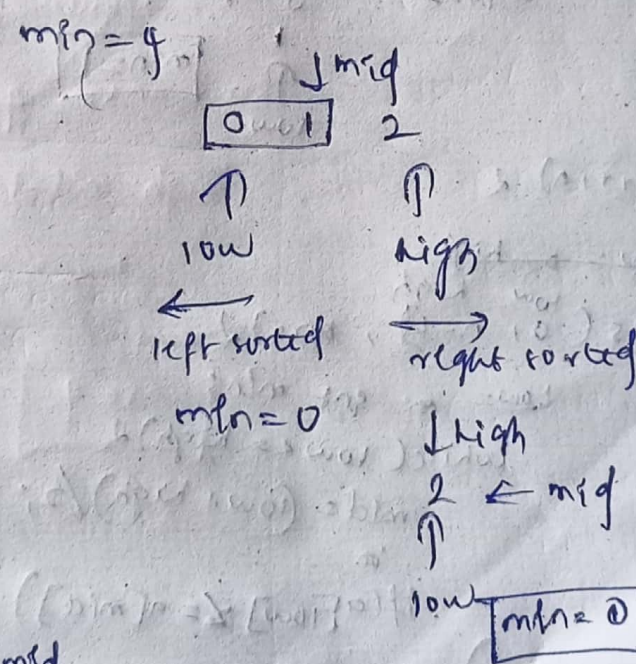 min = 4
↓ mid
0 1 2
↑ ↑
low high
← ↔
left sorted right sorted
min = 0 ↓ high
2 ← mid
↑
low min = 0
mid